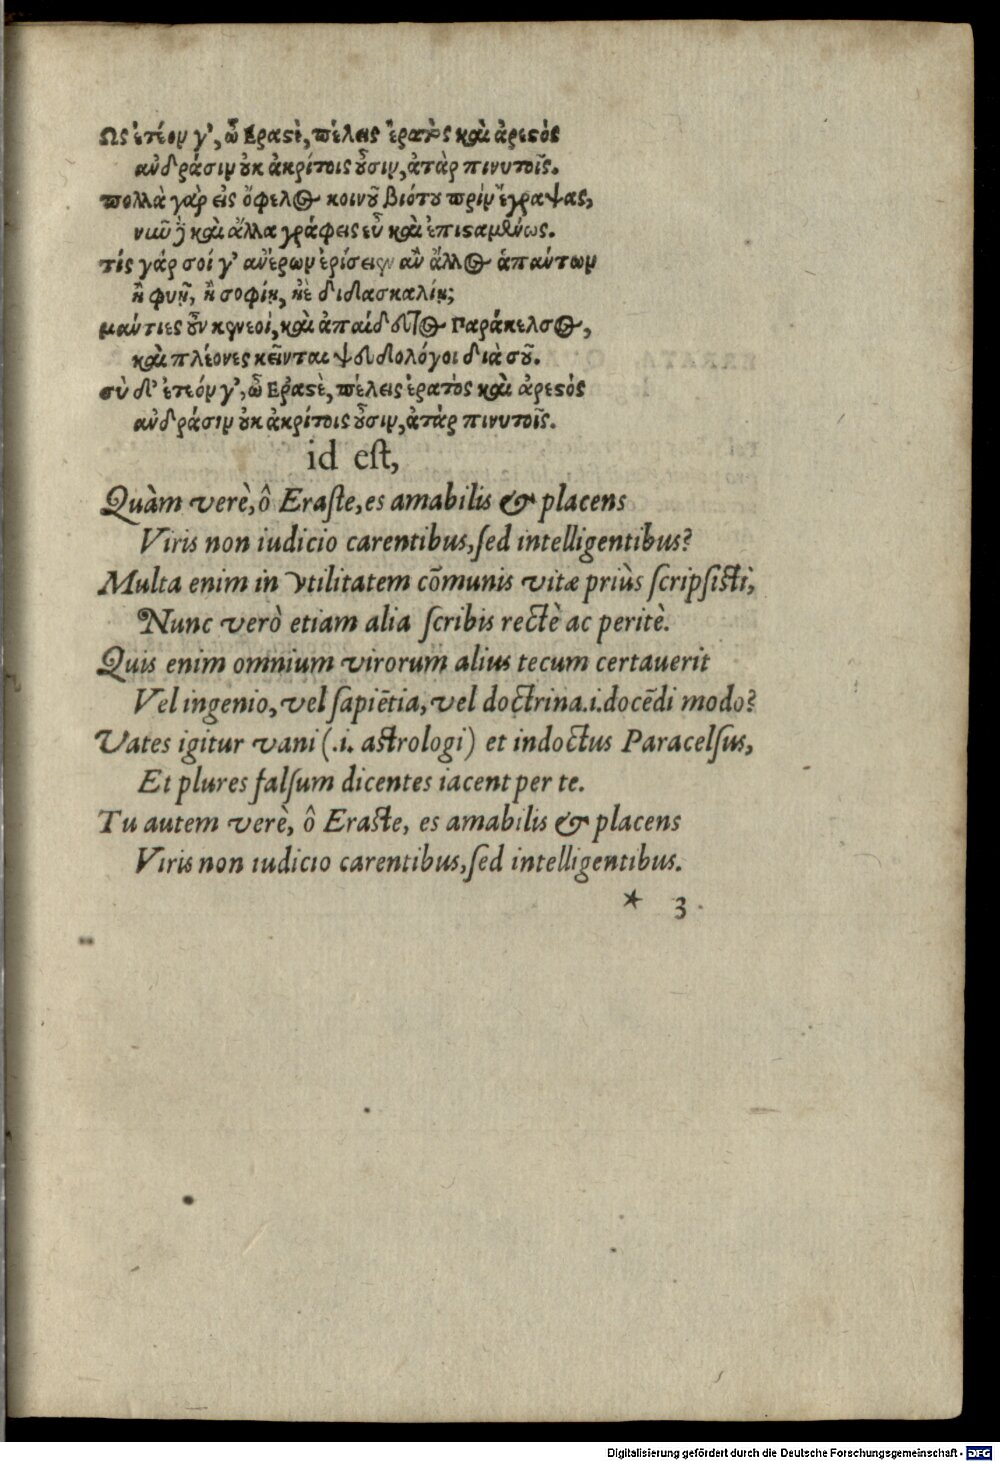 Ως ἐτέον γ', ὦ Εραϛὲ, πέλεις ἐρατὸς καὶ ἀρεϛὸς
ἀνδράσιν οὐκ ἀκρίτοις οὖσιν, ἀτὰρ πινυτοῖς.
πολλὰ γὰρ εἰς ὄφελος κοινοῦ βιότου πρὶν ἔγραψας,
νῦν δὲ καὶ ἄλλα γράφεις εὖ καὶ ἐπιϛαμένως.
τίς γάρ σοί γ' ἀνέρων ἐρίσειεν ἂν ἄλλος ἁπάντων
ἢ φυῇ, ἢ σοφίῃ, ἠὲ διδασκαλίῃ;
μάντιες οὖν κενεοὶ, καὶ ἀπαίδευτος Παράκελσος,
καὶ πλέονες κεῖνται ψευδολόγοι διὰ σοῦ.
σὺ δ' ἐτεόν γ', ὦ Εραϛὲ, πέλεις ἐρατὸς καὶ ἀρεϛὸς
ἀνδράσιν οὐκ ἀκρίτοις οὖσιν, ἀτὰρ πινυτοῖς.
id eſt,
Quàm verè, ô Eraſte, es amabilis & placens
Viris non iudicio carentibus, ſed intelligentibus?
Multa enim in vtilitatem cõmunis vitæ priùs ſcripſiſti,
Nunc verò etiam alia ſcribis rectè ac peritè.
Quis enim omnium virorum alius tecum certauerit
Vel ingenio, vel ſapiẽtia, vel doctrina .i. docẽdi modo?
Vates igitur vani (.i. aſtrologi) et indoctus Paracelſus,
Et plures falſum dicentes iacent per te.
Tu autem verè, ô Eraſte, es amabilis & placens
Viris non iudicio carentibus, ſed intelligentibus.
* 3
Digitalisierung gefördert durch die Deutsche Forschungsgemeinschaft - DFG